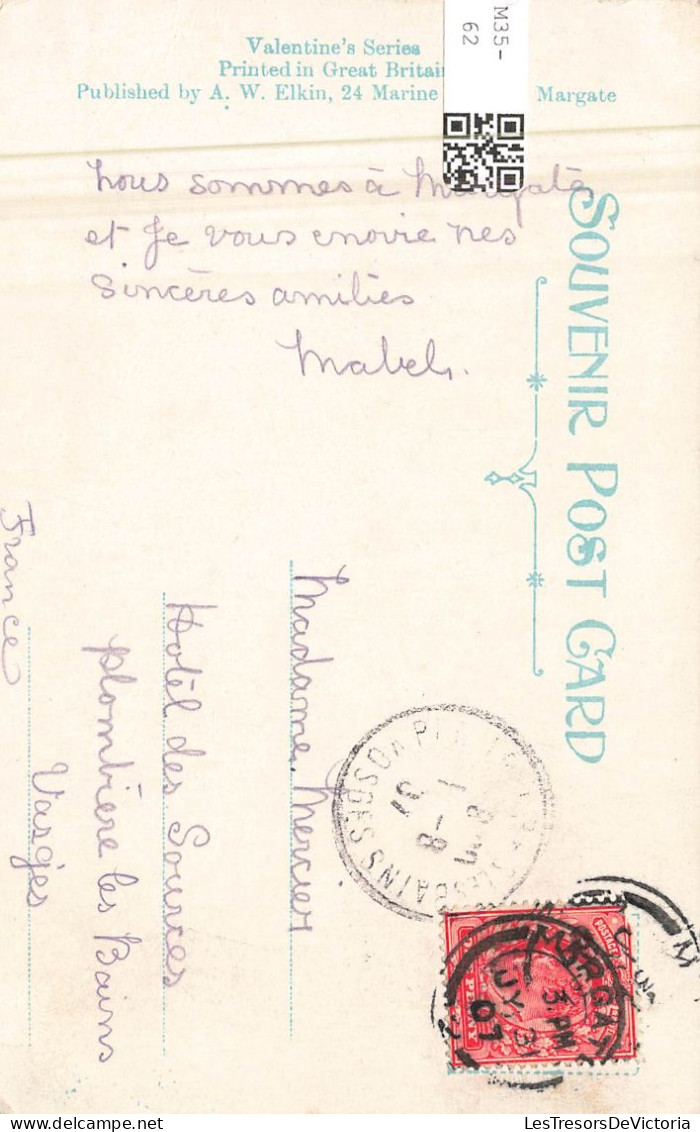 M35-
62
Valentine's Series
Printed in Great Britain
Published by A. W. Elkin, 24 Marine Margate
SOUVENIR POST CARD
nous sommes à Margate
et je vous envoie mes
sincères amitiés
Mabel.
Madame Mercier
Hotel des Sources
plombière les Bains
Vasges
France
BAINS VOSGES
1 - 8
07
MARGATE
3. PM
JY. 31
07
LesTresorsDeVictoria